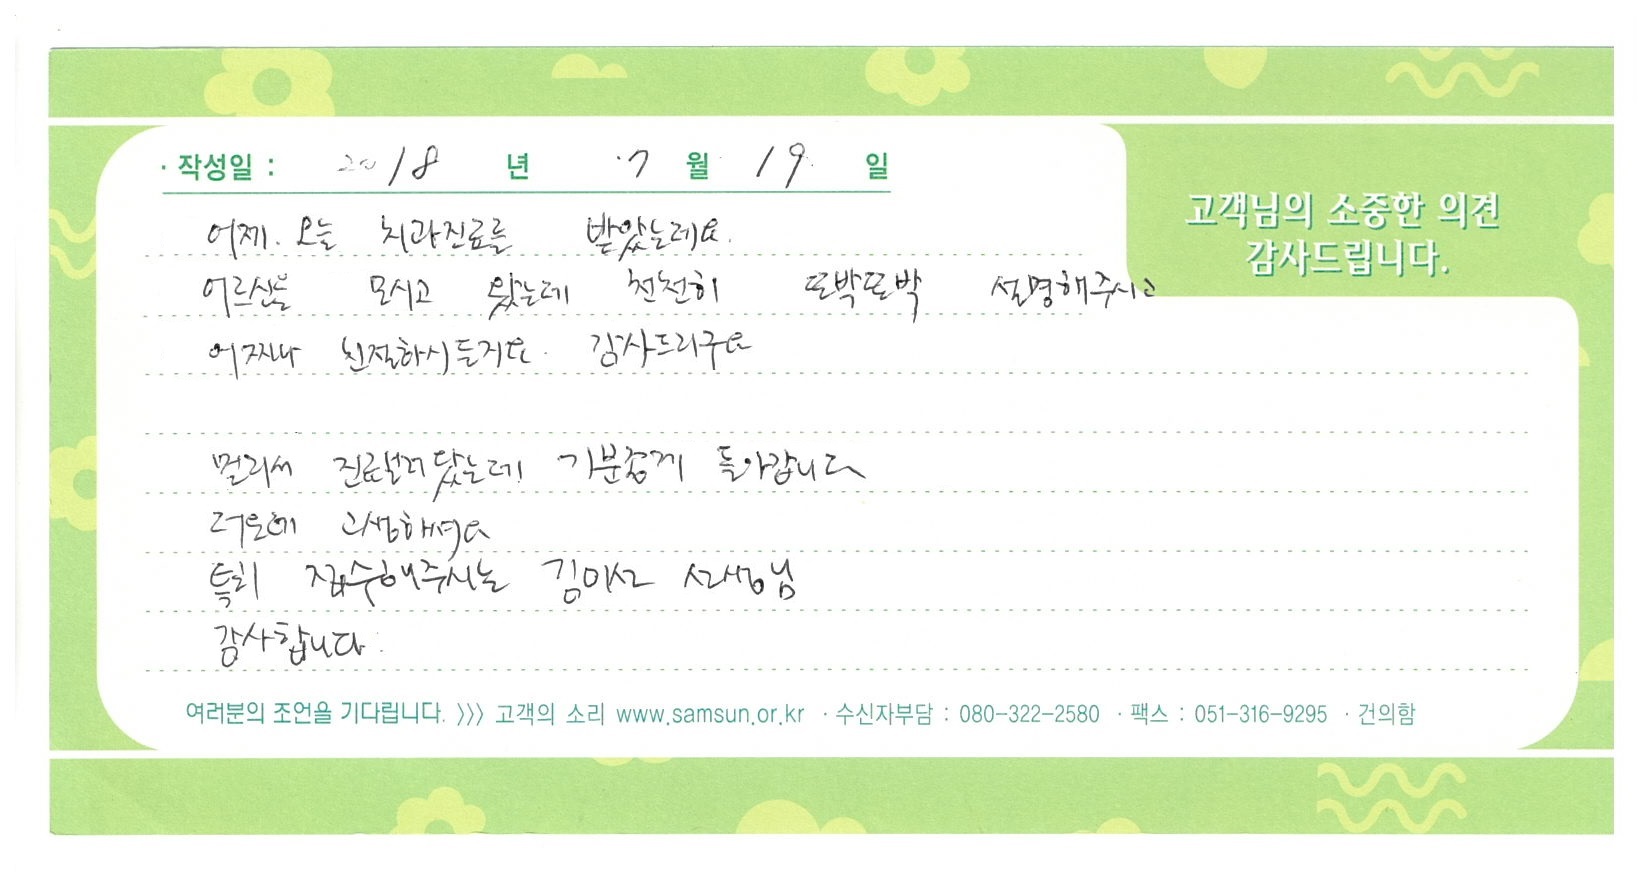 · 작성일 : 2018 년 7 월 19 일
고객님의 소중한 의견
감사드립니다.
어제. 오늘 치과진료를 받았는데요.
어르신을 모시고 왔는데 천천히 또박또박 설명해주시고
어찌나 친절하시든지요. 감사드리구요
멀리서 진료받으러 왔는데 기분좋게 돌아갑니다
더운데 고생하셔요
특히 접수해주시는 김미선 선생님
감사합니다.
여러분의 조언을 기다립니다. 〉〉〉 고객의 소리 www.samsun.or.kr · 수신자부담 : 080-322-2580 · 팩스 : 051-316-9295 · 건의함